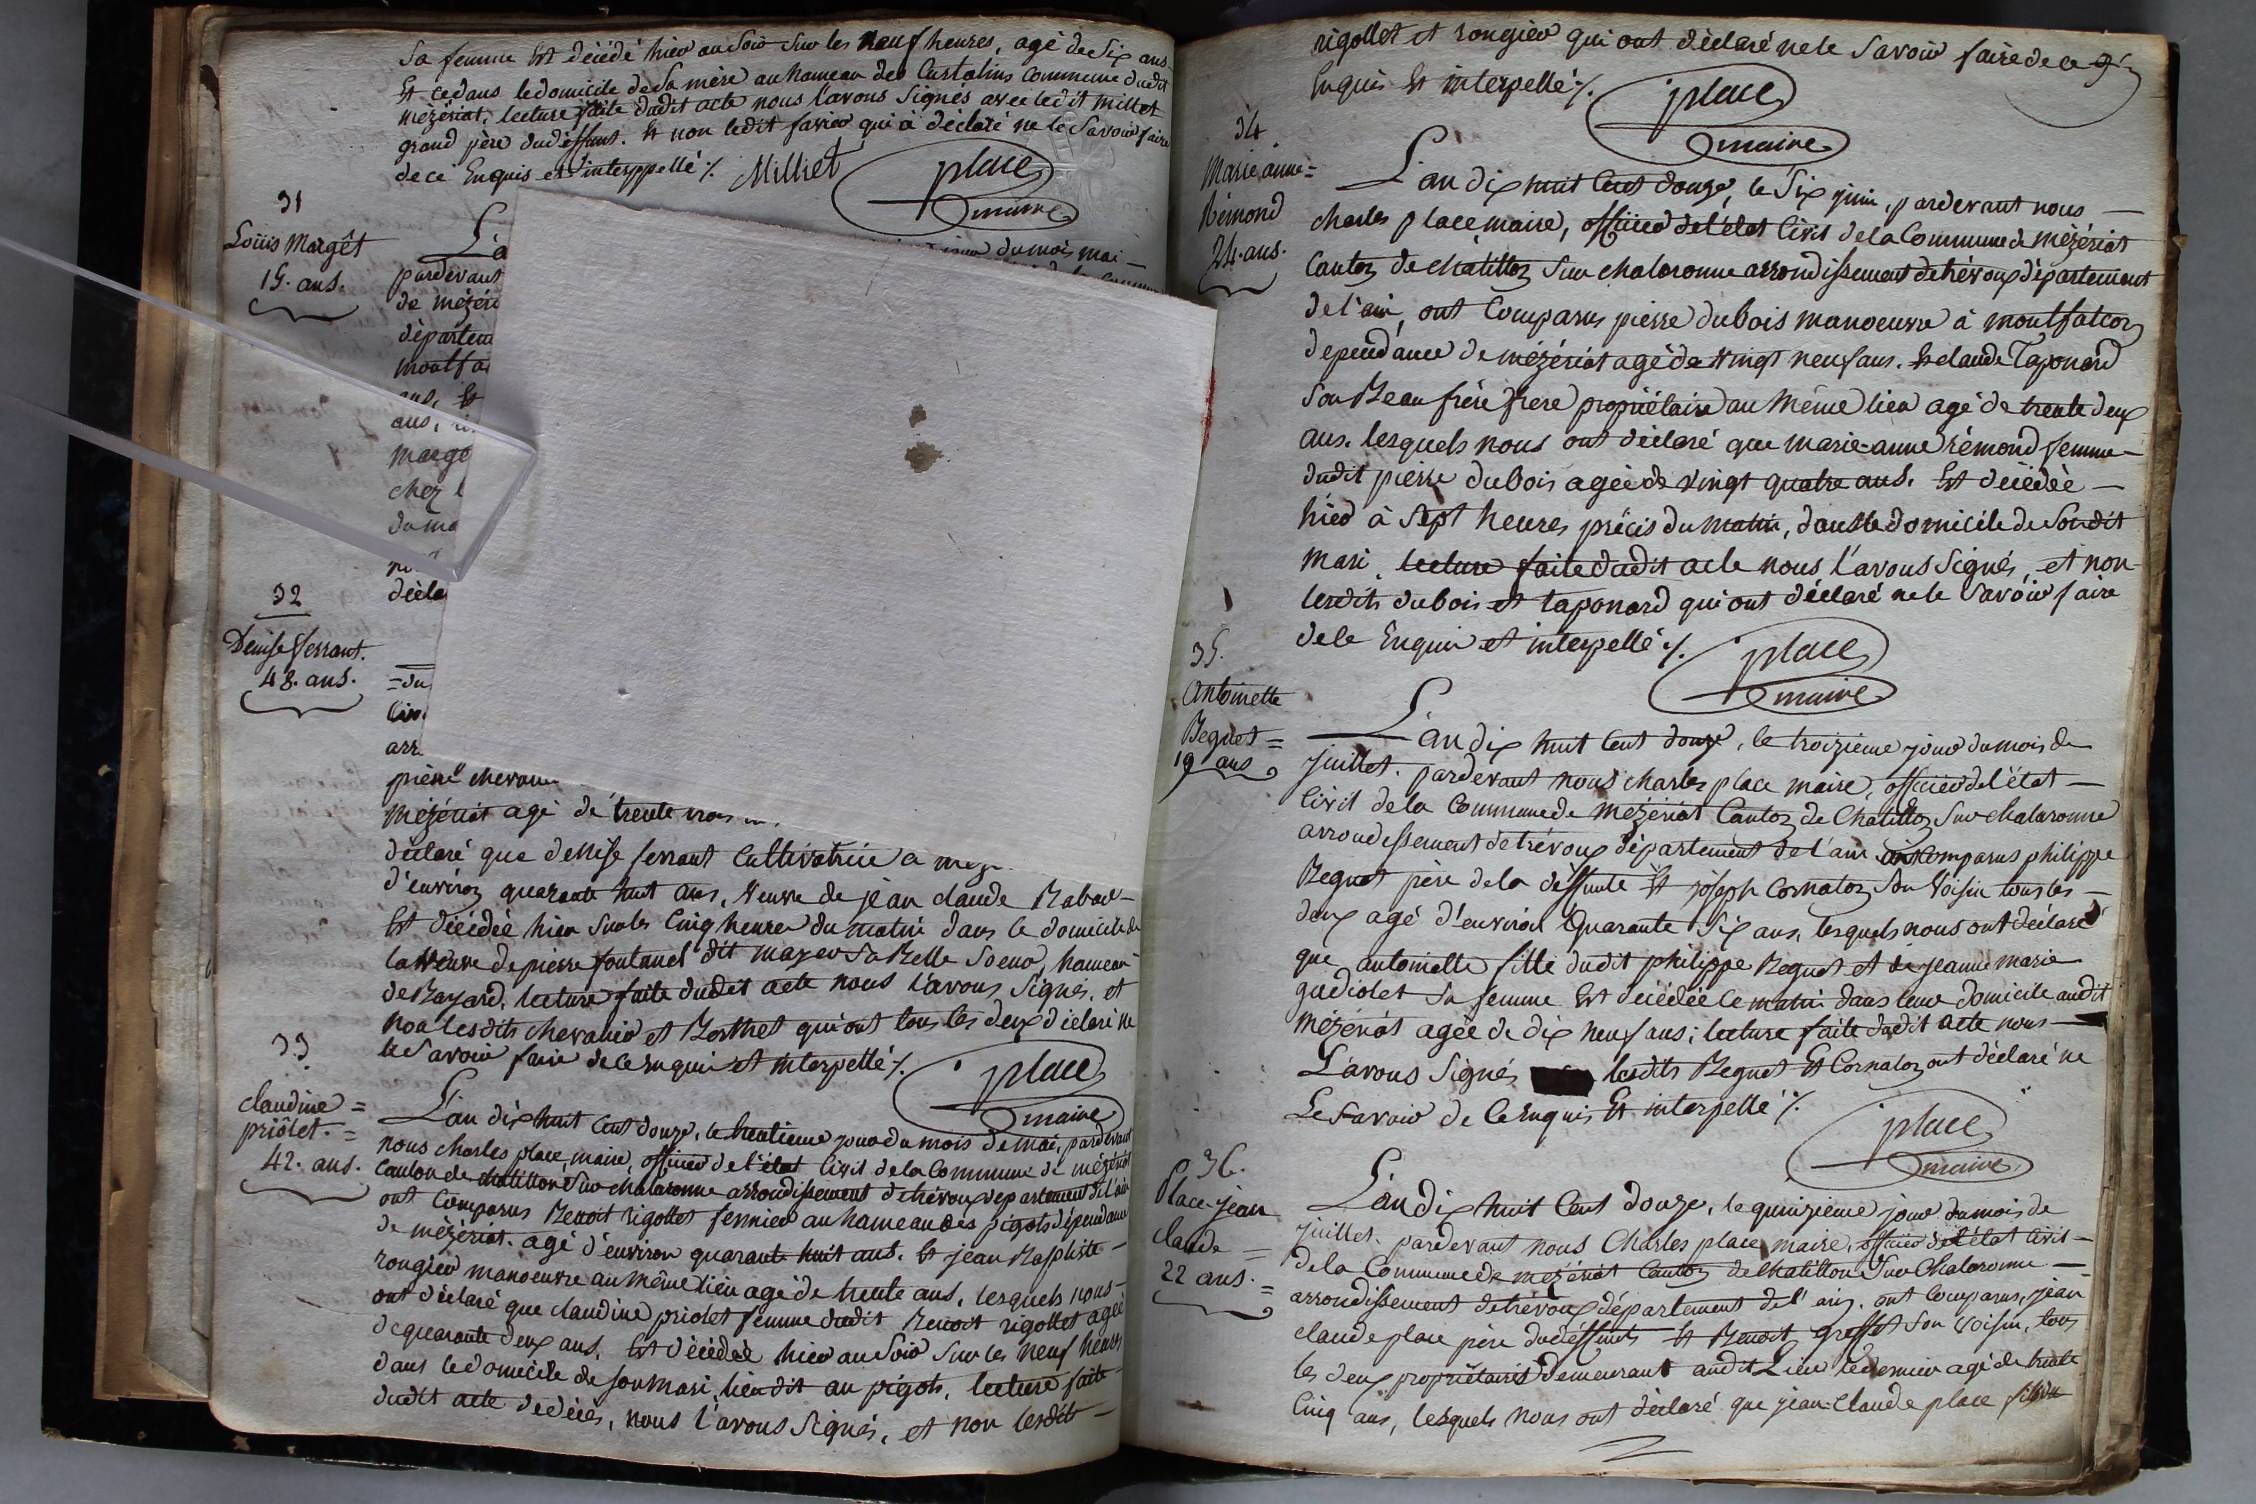 Sa femme Est décédé hier au Soir Sur les Neuf heures, agé de Six ans
Et ce dans le domicile de Sa mère au hameau des Custalins Commune dudit
mézériat. lecture faite dudit acte nous l'avons Signés avec ledit millet
grand père dudéffunt. Et non ledit favier qui a déclaré ne le Savoir faire
de ce Enquis et interppellé ./. Milliet place
maire
31
Loüis Margêt
15. ans.
L'a
pardevant
de mézéri
départem
montfa
ans, Et
ans,
marge
chez l
du ma
décla
du mois mai
32
Denise ferrant.
48. ans.
=du
Civi
arr
pierre chevalie
mézériat agé de trente trois
déclaré que denise ferrant Cultivatrice a méz
d'environ quarante huit ans, Veuve de jean claude Rabuel
Est décédée hier Sur les Cinq heures du matin dans le domicile de
la Veuve de pierre fontanel dit mayer Sa Belle Soeur, hameau
de Bayard. lecture faite dudit acte nous l'avons Signés, et
non lesdits chevalier et Berthet qui ont tous les deux déclaré ne
le Savoir faire de ce Enquis et interpellé ./. place
maire
33
claudine =
priôlet. =
42. ans.
L'an dix huit Cent douze, le trentieme jour du mois de mai, pardevant
nous charles place, maire, officier de l'état Civil de la Commune de mézériat
Canton de chatillon Sur chalaronne arrondissement de trévoux département de l'ain
ont Comparus Benoit rigollet fermier au hameau des pigots dépendance
de mézériat. agé d'environ quarante huit ans. Et jean Baptiste
rougier manoeuvre au même lieu agé de trente ans, lesquels nous
ont déclaré que claudine priolet femme dudit Benoit rigollet agée
de quarante deux ans, Est décédée hier au Soir Sur les neuf heures
dans le domicile de Son mari, lieu dit au pigots, lecture faite
dudit acte de décés, nous l'avons Signés, et non lesdits
rigollet et rougier qui ont déclaré ne le Savoir faire de ce
Enquis Et interpellé ./. place
maire
34
Marie anne =
Rémond
24. ans.
L'an dix huit Cent douze, le Six juin, pardevant nous
charles place maire, officier de l'état Civil de la Commune de mézériat
Canton de chatillon Sur chalaronne arrondissement de trévoux département
de l'ain, ont Comparus pierre dubois manoeuvre à montfalcon
dependance de mézériat agé de Vingt neuf ans. Et claude Taponard
Son Beau frère frere propriétaire au Même lieu agé de trente deux
ans. lesquels nous ont déclaré que marie-anne rémond femme
dudit pierre dubois agée de Vingt quatre ans. Est décédée
hier à Sept heures précis du matin, dans le domicile de Son dit
mari. lecture faite dudit acte nous l'avons Signés, et non
lesdits dubois et taponard qui ont déclaré ne le Savoir faire
de ce Enquis et interpellé ./. place
maire
35.
Antoinette
Beguet =
19 ans
L'an dix huit Cent douze, le troizieme jour du mois de
juillet. pardevant nous charles place maire, officier de l'état
Civil de la Commune de mézériat Canton de Chatillon Sur chalaronne
arrondissement de trévoux département de l'ain ont Comparus philippe
Beguet père de la déffunte Et joseph Cornaton Son Voisin tous les
deux agé d'environ Quarante Six ans, lesquels nous ont déclaré
que antoinette fille dudit philippe Beguet et de jeanne marie
gudiolet Sa femme Est décédée ce matin dans leur domicile audit
Mézériat agée de dix neuf ans; lecture faite dudit acte nous
L'avons Signés lesdits Beguet Et Cornaton ont déclaré ne
Le Savoir de ce Enquis Et interpellé ./. place
maire
36.
Place jean
claude =
22 ans. =
L'an dix huit Cent douze, le quinzieme jour du mois de
juillet. pardevant nous Charles place maire, officier de l'état Civil
de la Commune de mézériat Canton de Chatillon Sur Chalaronne
arrondissement de trévoux département de l'ain. ont Comparus, jean
claude place père du déffunts Et Benoit greffet Son Voisin, tous
les deux propriétaires demeurant audit Lieu le dernier agé de trente
Cinq ans, lesquels nous ont déclaré que jean-claude place fils du